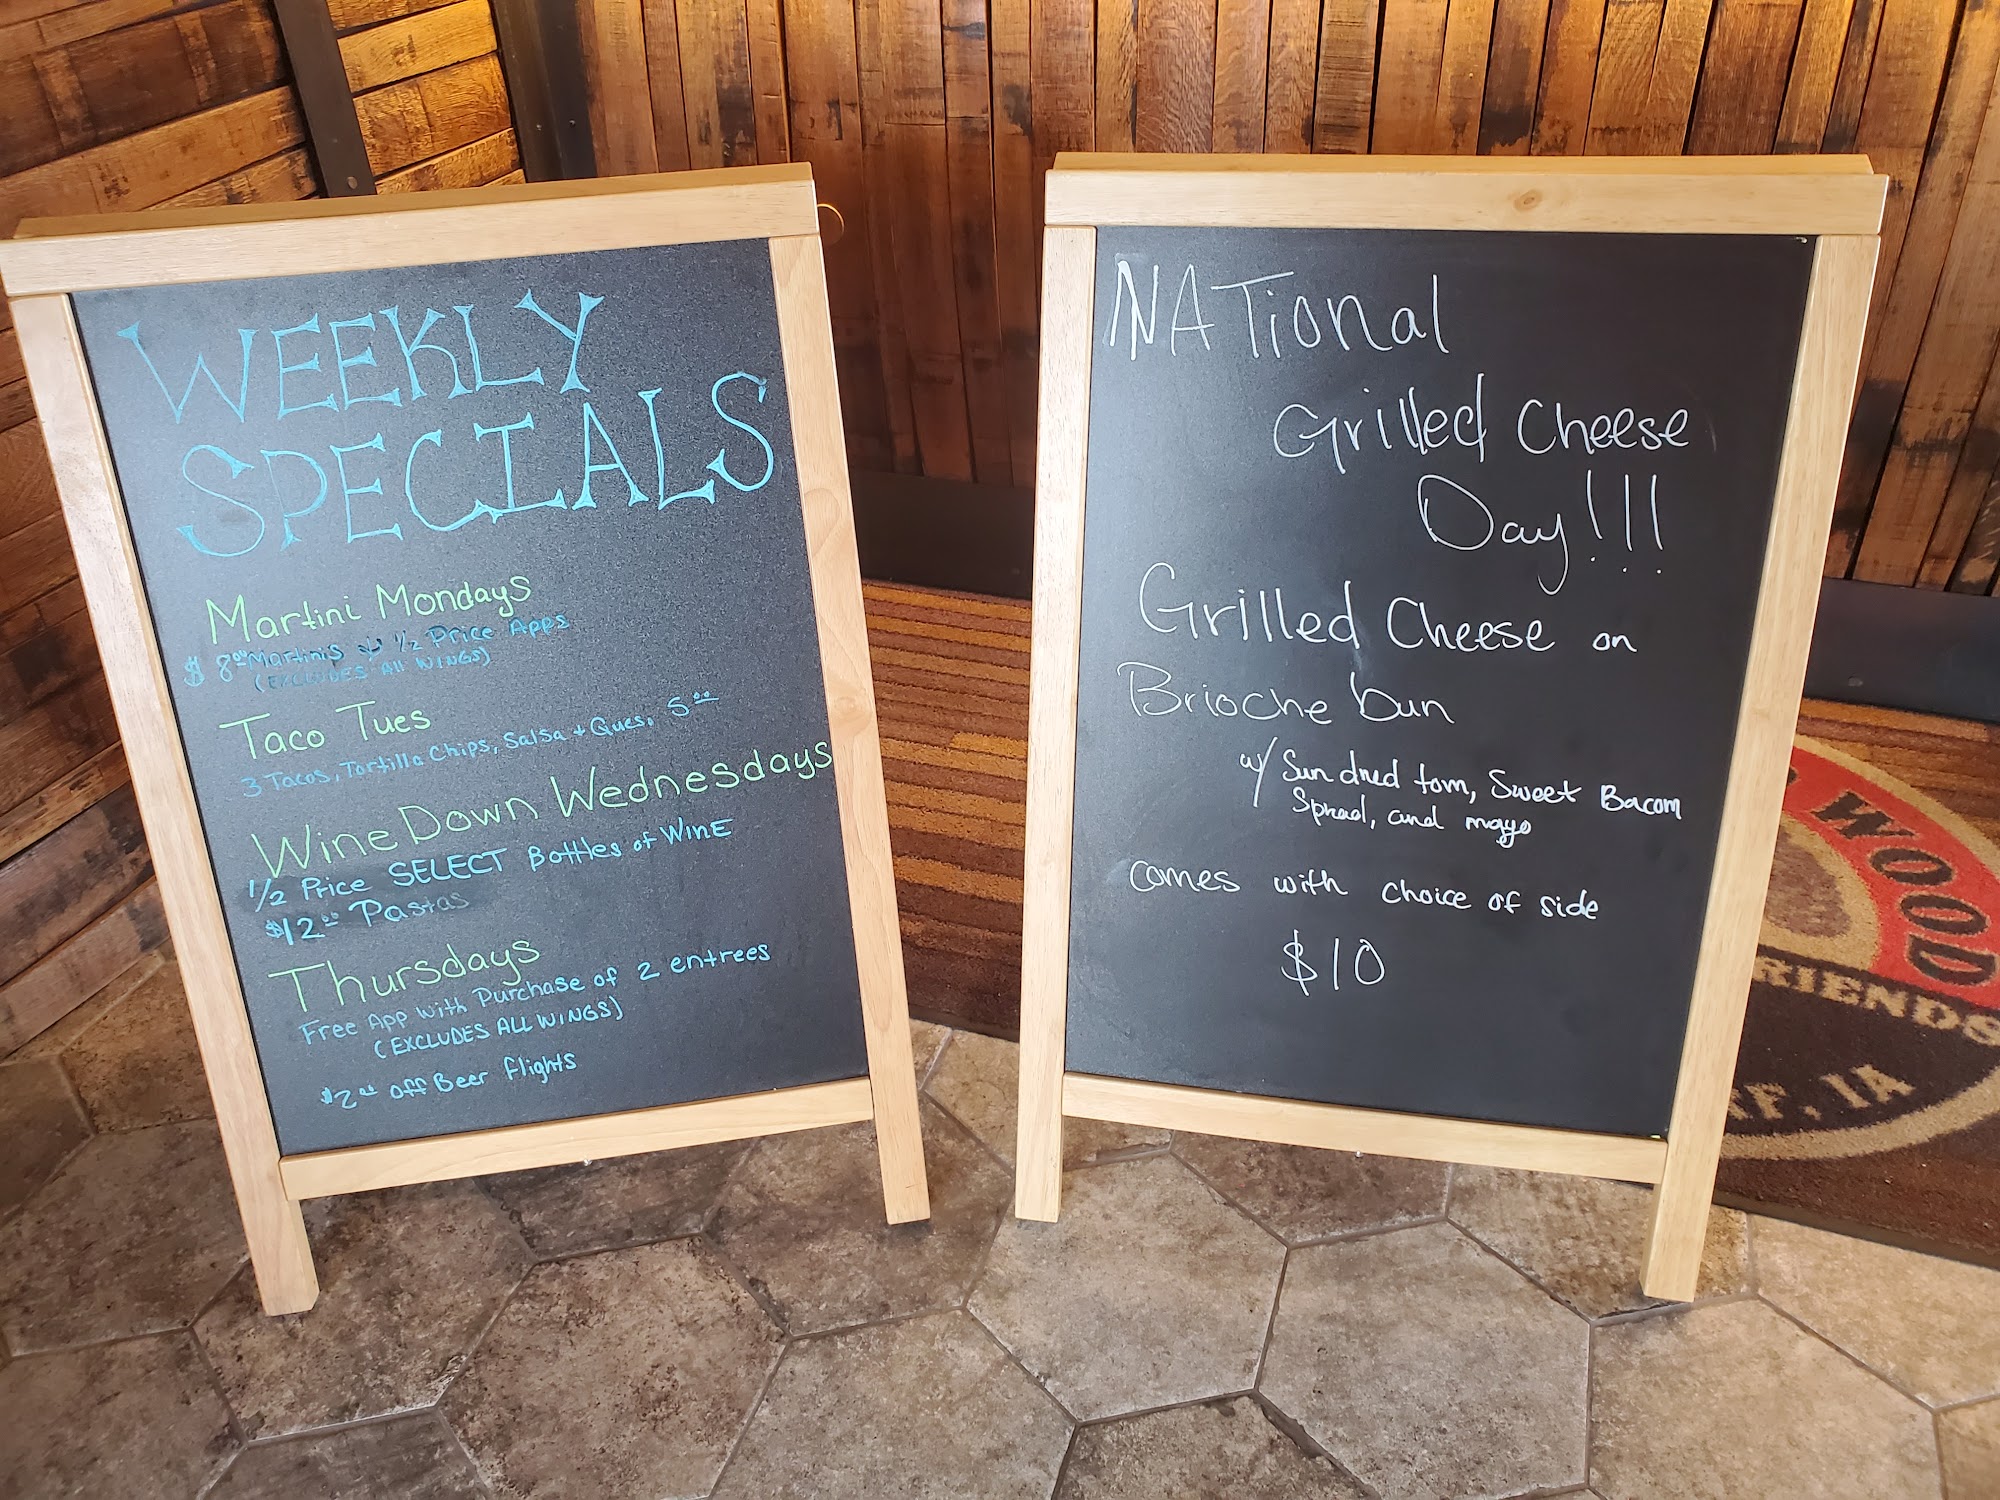 WEEKLY
SPECIALS
Martini Mondays
$8.00 Martinis 1/2 Price Apps
(EXCLUDES All WINGS)
Taco Tues
3 Tacos, Tortilla Chips, Salsa + Ques. 5.00
Wine Down Wednesdays
1/2 Price SELECT Bottles of WinE
$12.00 Pastas
Thursdays
Free App with Purchase of 2 entrees
(EXCLUDES ALL WINGS)
$2.00 off Beer flights
NATional
Grilled Cheese
Day!!!
Grilled Cheese on
Brioche bun
w/ Sun dried tom, Sweet Bacom
Spread, and mayo
comes with choice of side
$10
WOOD
RIENDS
FF, IA